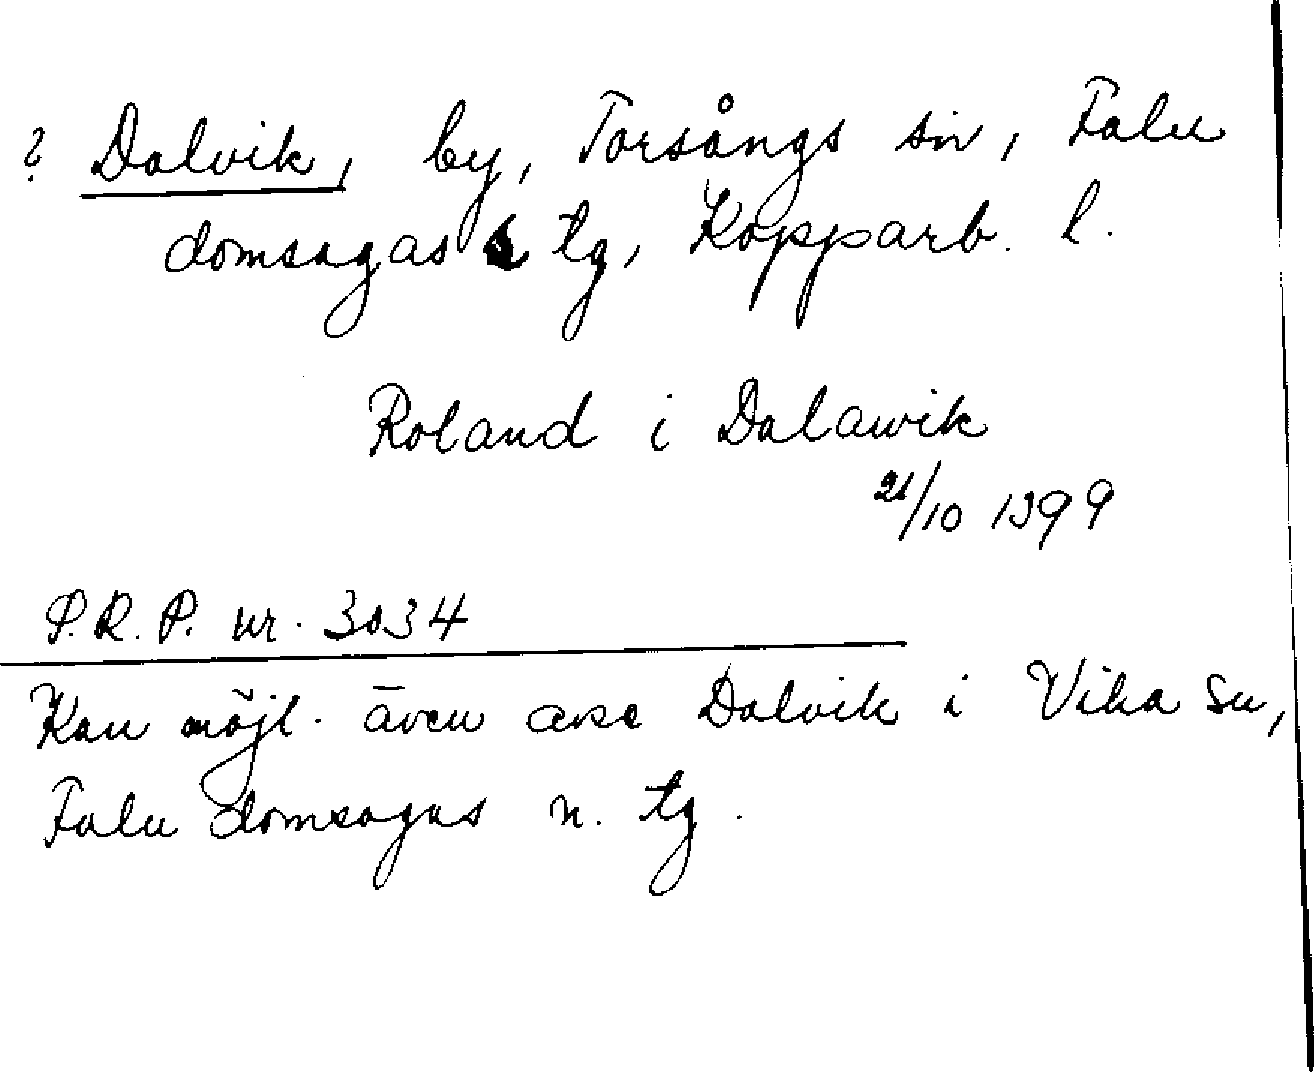 ? Dalvik, by, Torsångs sn, Falu
domsagas s tg, Kopparb. l.
Roland i Dalawik
21/10 1399
S.R.P. nr. 3034
Kan möjl. även avse Dalvik i Vika sn,
Falu domsagas n. tg.